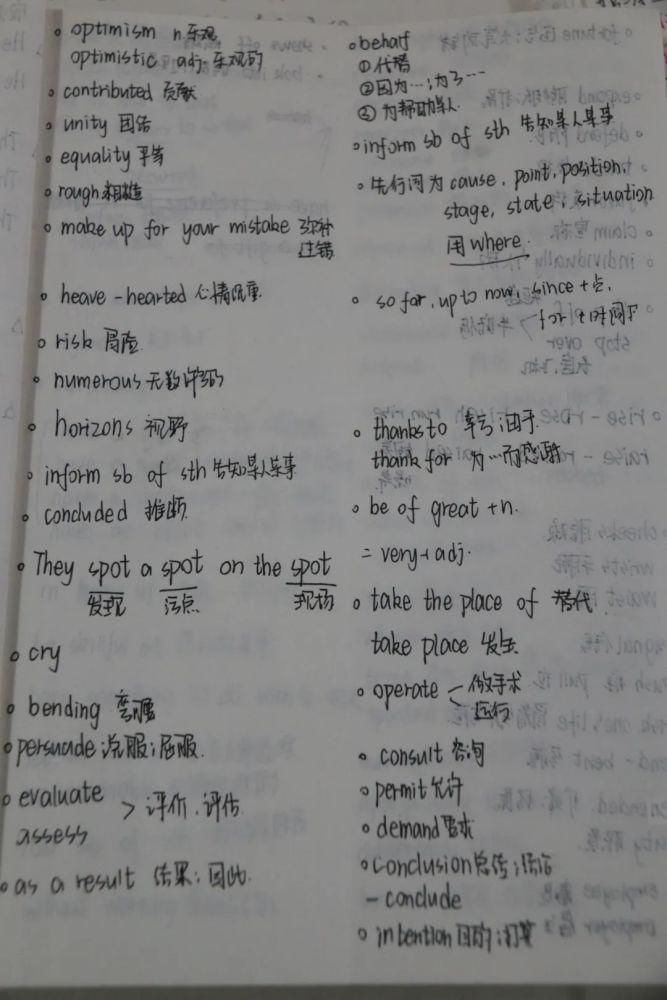 optimism n.乐观
optimistic adj.乐观的
contributed 贡献
unity 团结
equality 平等
rough 粗糙
make up for your mistake 弥补
过错
heave-hearted 心情沉重
risk 冒险
numerous 无数的
horizons 视野
inform sb of sth 告知某人某事
concluded 推断
They spot a spot on the spot
发现 污点 现场
cry
bending 弯腰
persuade 说服;屈服.
evaluate
> 评价.评估
assess
as a result 结果;因此.
behalf
①代替
②因为…;为了…
③为帮助某人
inform sb of sth 告知某人某事
先行词为 cause, point, position,
stage, state, situation
用 where.
so far, up to now, since+点,
for+时间段
thanks to 幸亏;由于
thank for 为…而感谢
be of great +n.
= very+adj.
take the place of 替代
take place 发生
operate < 做手术
运行
consult 咨询
permit 允许
demand 要求
conclusion 总结;结论
- conclude
intention 目的;打算